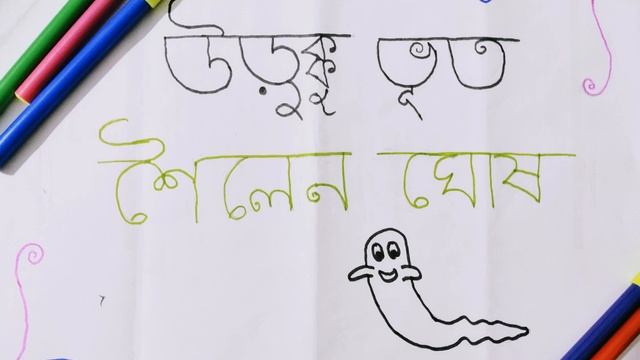 উড়ুক্কু ভূত
শৈলেন ঘোষ